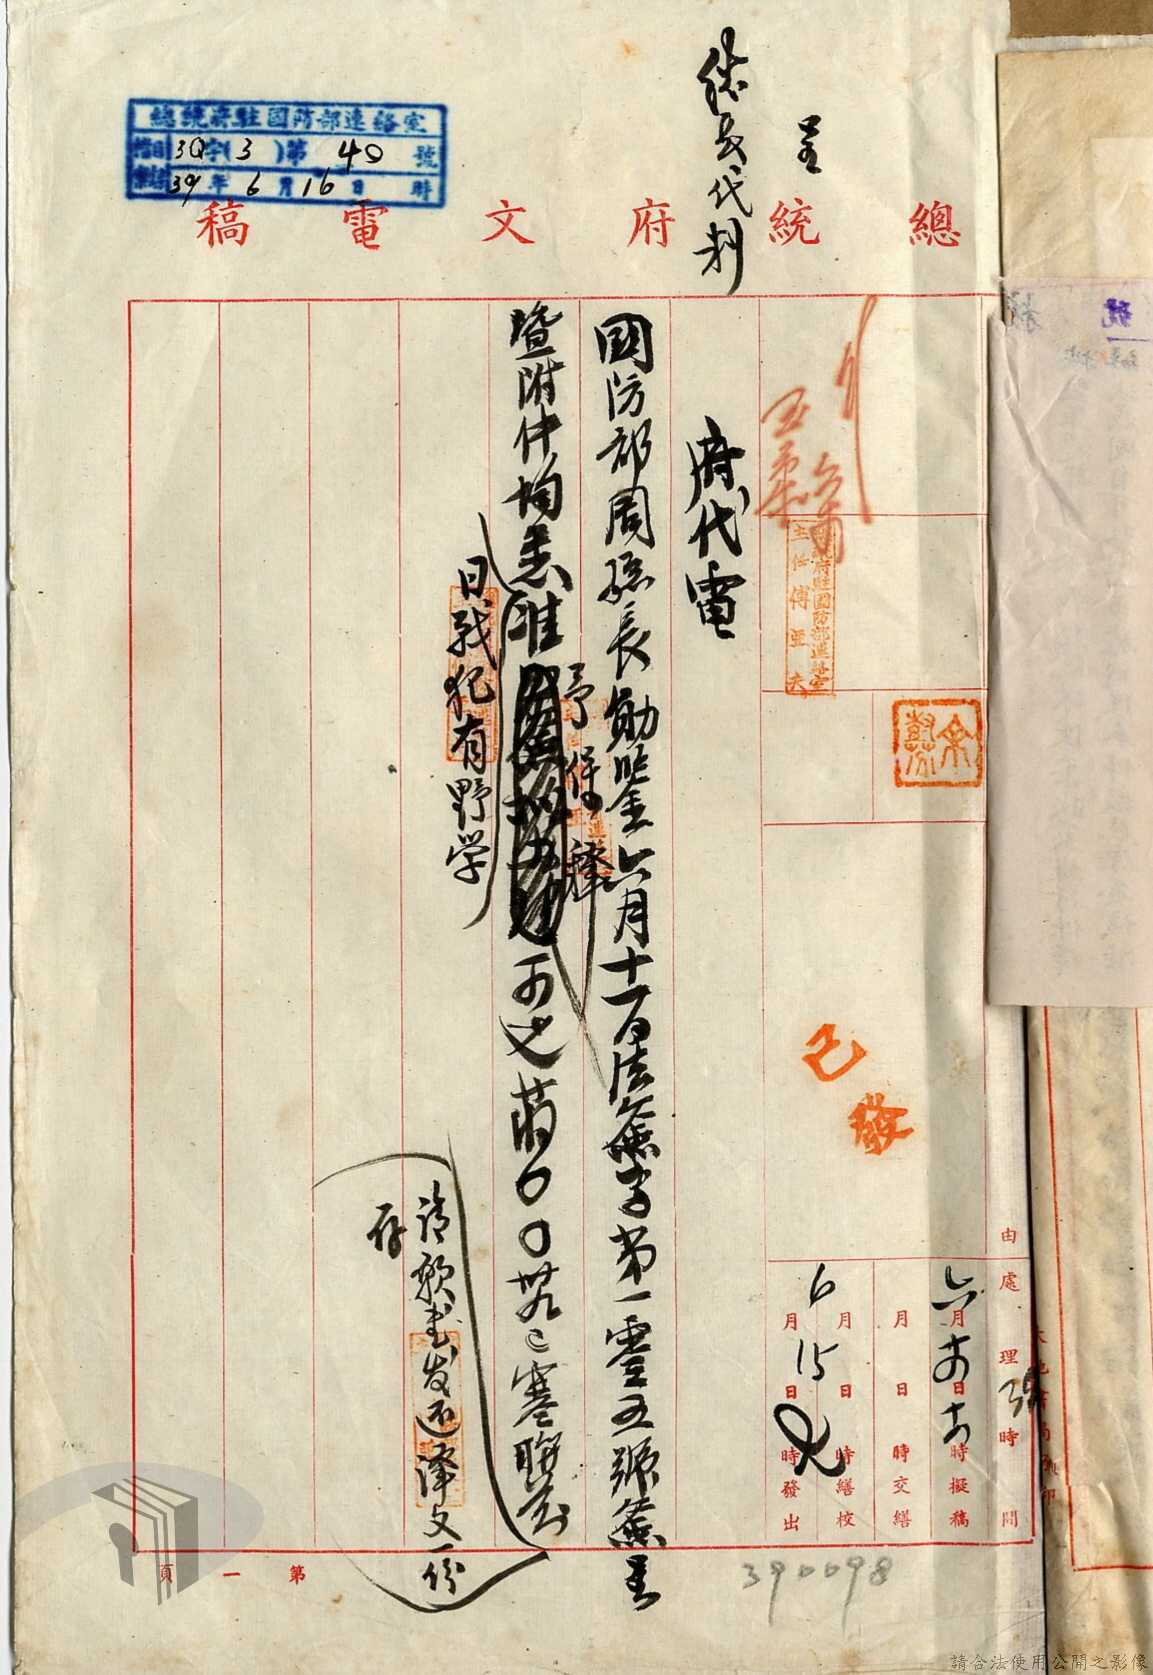 總統府駐國防部連絡室
39字(3)第40號
39年6月16日 時
呈
代判
總統府文電稿
主任傅亞夫
府駐國防部連絡室
府代電
國防部周總長勛鑒六月十一日法無字第一零五號無呈
暨附件均悉准
予保釋
日戰犯有野学
可也蔣〇〇
請願書发还譯文一份
存
已發
由
處理時間
六月 日 時擬稿
月 日 時交繕
月 日 時繕校
6月15日 時發出
第一頁
390098
請合法使用公開之影像